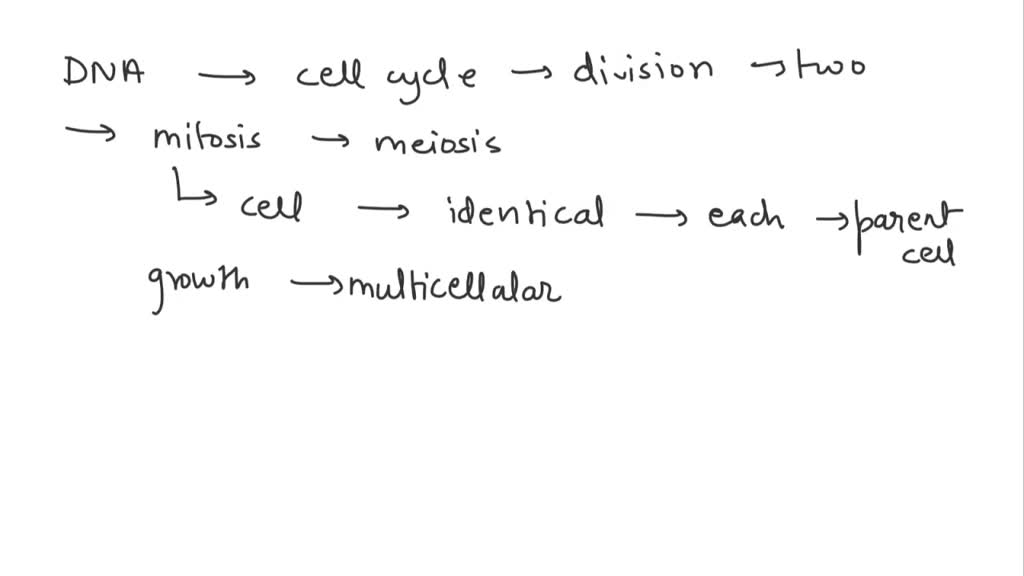 DNA → cell cycle → division → two
→ mitosis → meiosis
↳ cell → identical → each → parent cell
growth → multicellalar